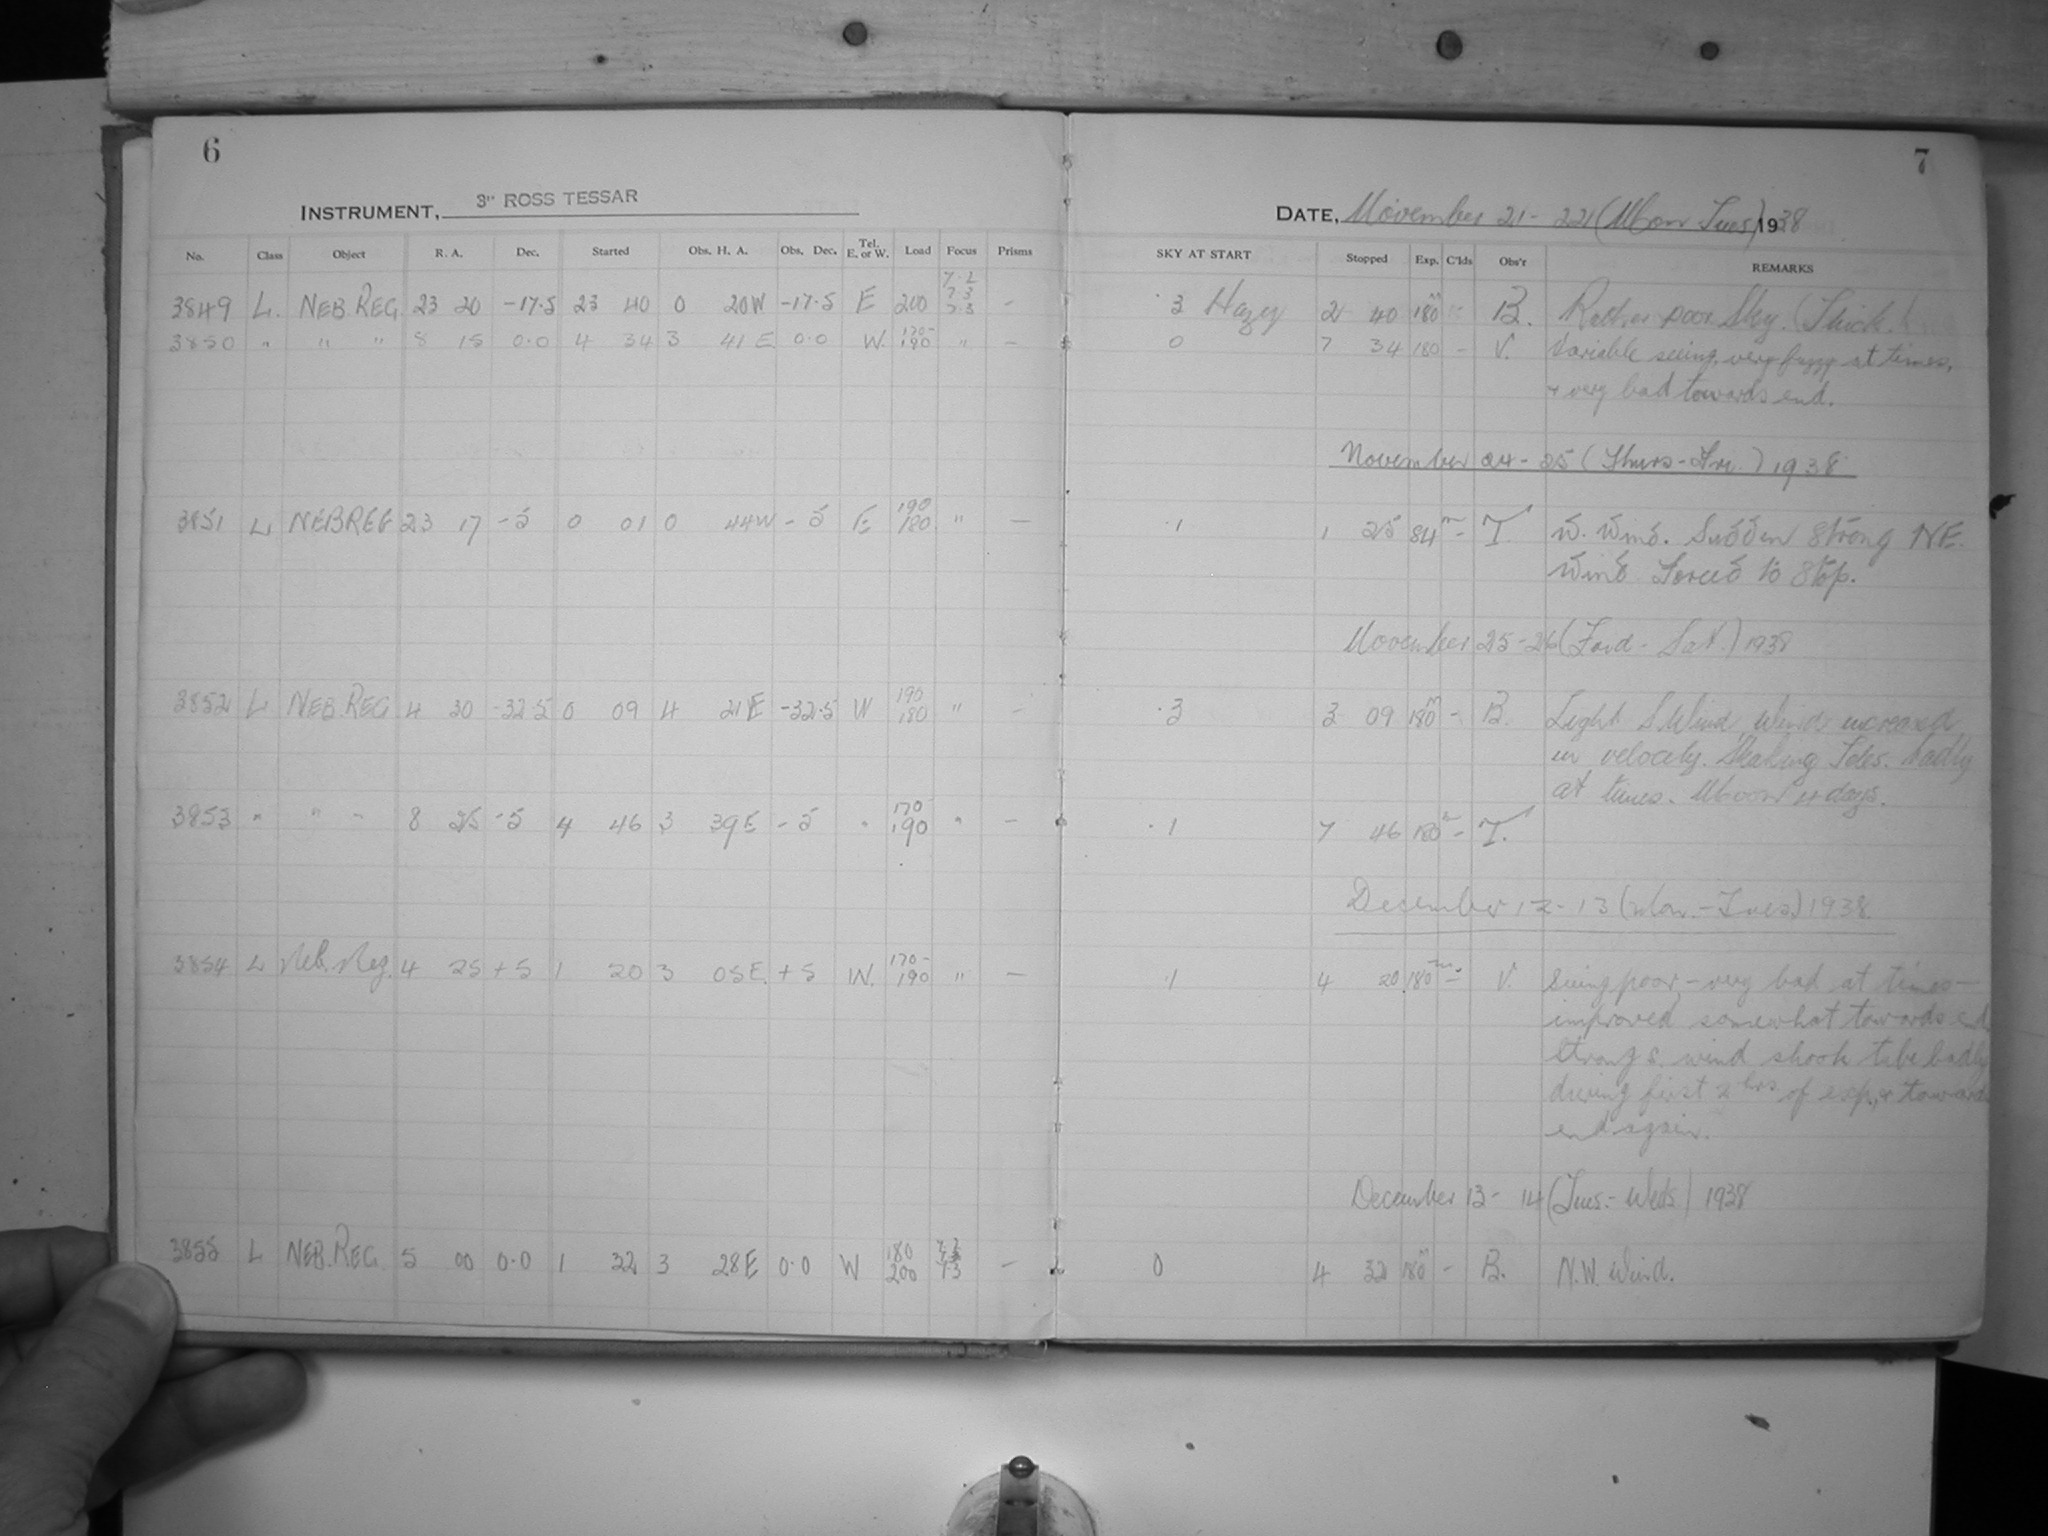 6
INSTRUMENT, 3" ROSS TESSAR
No. Class Object R. A. Dec. Started Obs. H. A. Obs. Dec. Tel. E. or W. Load Focus Prisms
3849 L. NEB. REG. 23 20 -17.5 23 40 0 20W -17.5 E 200 7.2 7.3 7.3 -
3850 " " " 8 15 0.0 4 34 3 41 E 0.0 W. 170- 190 " -
3851 L NEB REG 23 17 -5 0 01 0 44W -5 E 190 180 " -
3852 L NEB. REG 4 30 -32.5 0 09 4 21E -32.5 W 190 180 " -
3853 " " " 8 25 -5 4 46 3 39E -5 " 170 190 " -
3854 L Neb. Reg. 4 25 +5 1 20 3 05E. +5 W. 170- 190 " -
3855 L NEB. REG. 5 00 0.0 1 32 3 28E 0.0 W 180 200 -
7
DATE, November 21- 22 (Mon Tues) 1938
SKY AT START Stopped Exp. C'lds Obs'r REMARKS
.3 Hazy 2 40 180m B. Rather poor Sky. (Thick.)
0 7 34 180 - V. Variable seeing, very fuzzy at times,
+ very bad towards end.
November 24-25 (Thurs-Fri.) 1938
.1 1 25 84m - T. W. Wind. Sudden Strong NE.
Wind Forced to Stop.
November 25-26 (Frid - Sat.) 1938
.3 3 09 180m - B. Light S. Wind, Wind increased
in velocity. Shaking Teles. badly
at times. Moon 4 days.
.1 7 46 180m - T.
December 12-13 (Mon.-Tues) 1938
.1 4 20 180m - V. Seeing poor - very bad at times -
improved somewhat towards end
Strong S. wind shook tube badly
during first 2 hrs of exp. & towards
end again.
December 13- 14 (Tues.- Weds) 1938
0 4 32 180m - B. N.W. Wind.